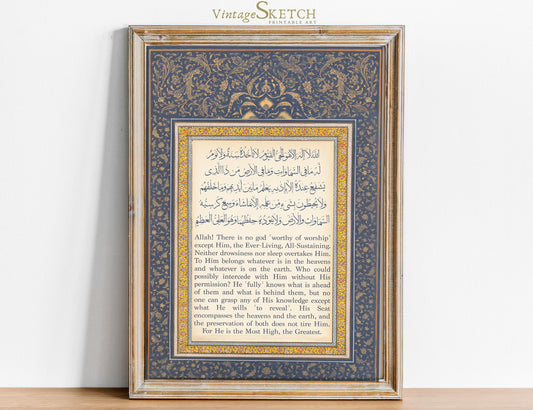 VintageSKETCH
PRINTABLE ART
الله لا إله إلا هو الحي القيوم لا تأخذه سنة ولا نوم
له ما في السماوات وما في الأرض من ذا الذي
يشفع عنده إلا بإذنه يعلم ما بين أيديهم وما خلفهم
ولا يحيطون بشيء من علمه إلا بما شاء وسع كرسيه
السماوات والأرض ولا يئوده حفظهما وهو العلي العظيم
Allah! There is no god ˹worthy of worship˺
except Him, the Ever-Living, All-Sustaining.
Neither drowsiness nor sleep overtakes Him.
To Him belongs whatever is in the heavens
and whatever is on the earth. Who could
possibly intercede with Him without His
permission? He ˹fully˺ knows what is ahead
of them and what is behind them, but no
one can grasp any of His knowledge except
what He wills ˹to reveal˺. His Seat
encompasses the heavens and the earth, and
the preservation of both does not tire Him.
For He is the Most High, the Greatest.